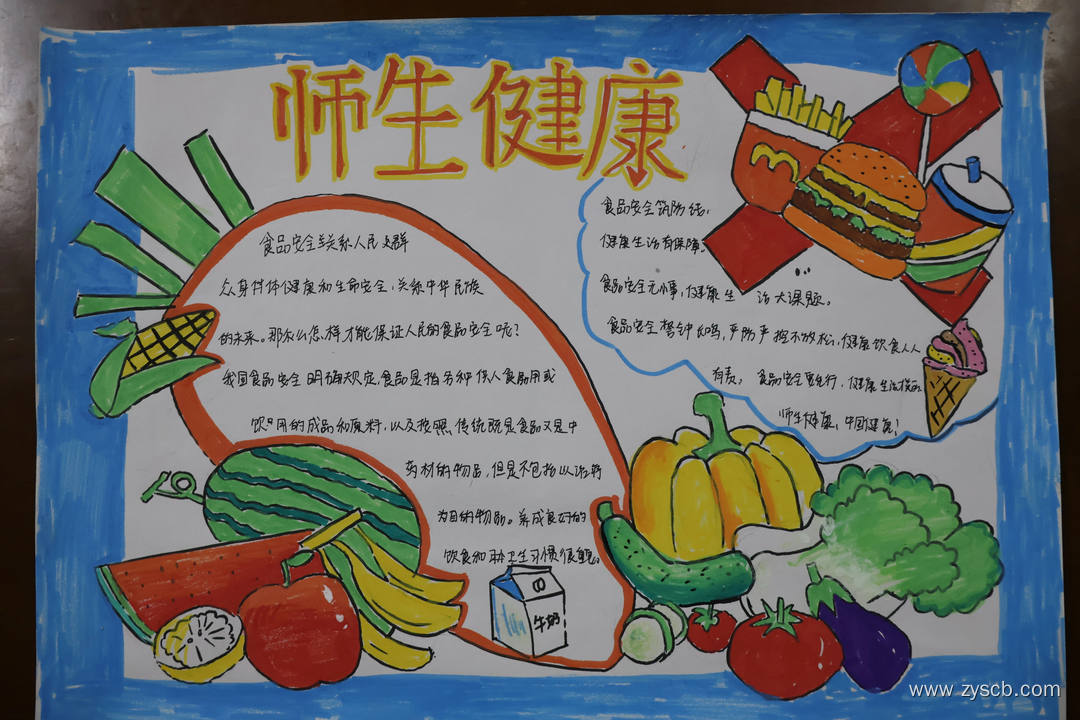 师生健康
食品安全关系人民大群
众身体健康和生命安全,关系中华民族
的未来。那么怎样才能保证人民的食品安全呢?
我国食品安全明确规定,食品是指各种供人食用或
饮用的成品和原料,以及按照传统既是食品又是中
药材的物品,但是不包括以治疗
为目的物品。养成良好的
饮食和卫生习惯很重要。
牛奶
食品安全筑防线,
健康生活有保障。
食品安全无小事,健康生活大课题。
食品安全警钟长鸣,严防严控不放松,健康饮食人人
有责。食品安全要先行,健康生活
师生健康,中国健康!
www.zyscb.com